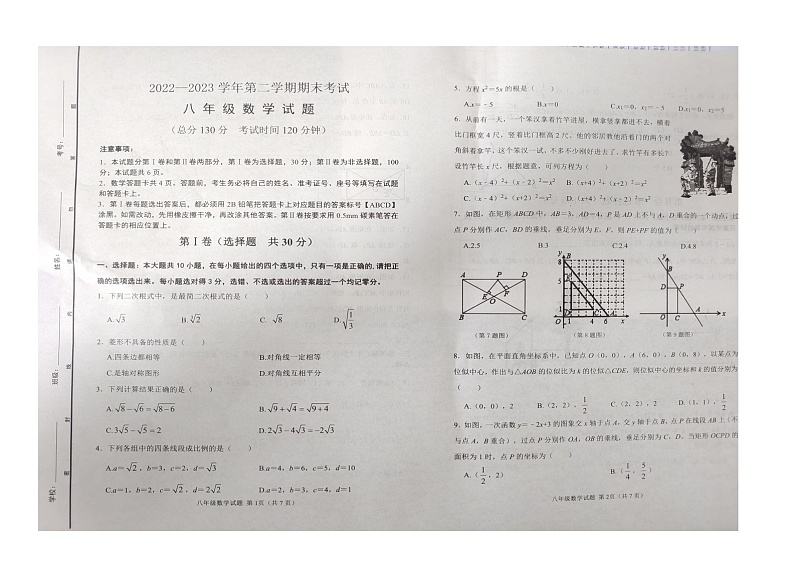 2022—2023 学年第二学期期末考试
八 年 级 数 学 试 题
（总分 130 分 考试时间 120 分钟）
注意事项：
1．本试题分第Ⅰ卷和第Ⅱ卷两部分，第Ⅰ卷为选择题，30 分；第Ⅱ卷为非选择题，100
分；本试题共 6 页．
2．数学答题卡共 4 页．答题前，考生务必将自己的姓名、准考证号、座号等填写在试题
和答题卡上．
3．第Ⅰ卷每题选出答案后，都必须用 2B 铅笔把答题卡上对应题目的答案标号【ABCD】
涂黑．如需改动，先用橡皮擦干净，再改涂其他答案．第Ⅱ卷按要求用 0.5mm 碳素笔答在
答题卡的相应位置上．
第Ⅰ卷（选择题 共 30 分）
一、选择题：本大题共 10 小题，在每小题给出的四个选项中，只有一项是正确的，请把正
确的选项选出来．每小题选对得 3 分，选错、不选或选出的答案超过一个均记零分．
1．下列二次根式中，是最简二次根式的是（ ）
A. √3 B. ∛2 C. √8 D. √(1/3)
2．菱形不具备的性质是（ ）
A.四条边都相等 B.对角线一定相等
C.是轴对称图形 D.对角线互相平分
3．下列计算结果正确的是（ ）
A. √8－√6＝√(8－6) B. √9＋√4＝√(9＋4)
C. 3√5－√5＝2 D. 2√3－4√3＝－2√3
4．下列各组中的四条线段成比例的是（ ）
A.a＝√2，b＝3，c＝2，d＝√3 B.a＝4，b＝6，c＝5，d＝10
C.a＝1，b＝2，c＝√2，d＝2√2 D.a＝2，b＝3，c＝4，d＝1
八年级数学试题 第 1页（共 7 页）
5．方程 x²＝5x 的根是（ ）
A.x＝－5 B.x＝0 C.x₁＝0，x₂＝－5 D.x₁＝0，x₂＝5
6．从前有一天，一个笨汉拿着竹竿进屋，横拿竖拿都进不去，横着
比门框宽 4 尺，竖着比门框高 2 尺．他的邻居教他沿着门的两个对
角斜着拿竿，这个笨汉一试，不多不少刚好进去了．求竹竿有多长？
设竹竿长 x 尺，根据题意，可列方程为（ ）
A.（x－4）²＋（x－2）²＝x² B.（x+4）²＋（x+2）²＝x²
C.（x－4）²＋（x+2）²＝x² D.（x+4）²＋（x－2）²＝x²
7．如图，在矩形 ABCD 中，AB＝3，AD＝4，P 是 AD 上不与 A、D 重合的一个动点，过
点 P 分别作 AC，BD 的垂线，垂足分别为 E、F，则 PE+PF 的值为（ ）
A.2.5 B.3 C.2.4 D.4.8
A P D
E O F
B C
（第 7 题图）
y
8
B
5
1
O 1 4 6 x
（第 8 题图）
y
B
D P
O C A x
（第 9 题图）
8．如图，在平面直角坐标系中，已知点 O（0，0），A（6，0），B（0，8），以某点为
位似中心，作出与△AOB 的位似比为 k 的位似△CDE，则位似中心的坐标和 k 的值分别为
（ ）
A.（0，0），2 B.（2，2），1/2 C.（2，2），2 D.（1，1），1/2
9．如图，一次函数 y＝－2x+3 的图象交 x 轴于点 A，交 y 轴于点 B，点 P 在线段 AB 上（不
与点 A，B 重合），过点 P 分别作 OA，OB 的垂线，垂足分别为 C，D．当矩形 OCPD 的
面积为 1 时，点 P 的坐标为（ ）
A.（1/2，2） B.（1/4，5/2）
八年级数学试题 第 2页（共 7 页）
考号：
姓名：
班级：
学校：